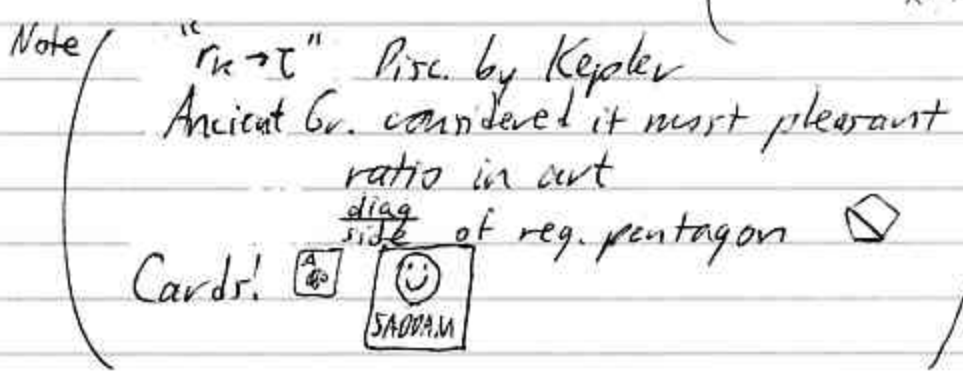 Note
"rₖ→τ" Disc. by Kepler
Ancient Gr. considered it most pleasant
ratio in art
diag
side of reg. pentagon
Cards! A
SADDAM